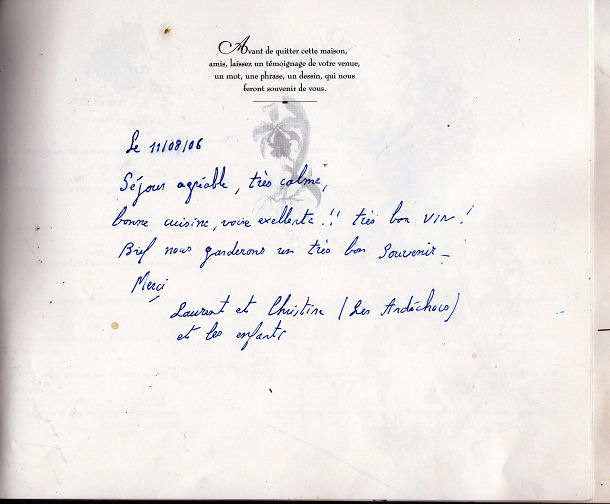 Avant de quitter cette maison,
amis, laissez un témoignage de votre venue,
un mot, une phrase, un dessin, qui nous
feront souvenir de vous.
Le 11/08/06
Séjour agréable, très calme,
bonne cuisine, voire exellente !! très bon VIN !
Bref nous garderons un très bon Souvenir_
Merci
Laurent et Christine (Les Ardéchois)
et les enfants